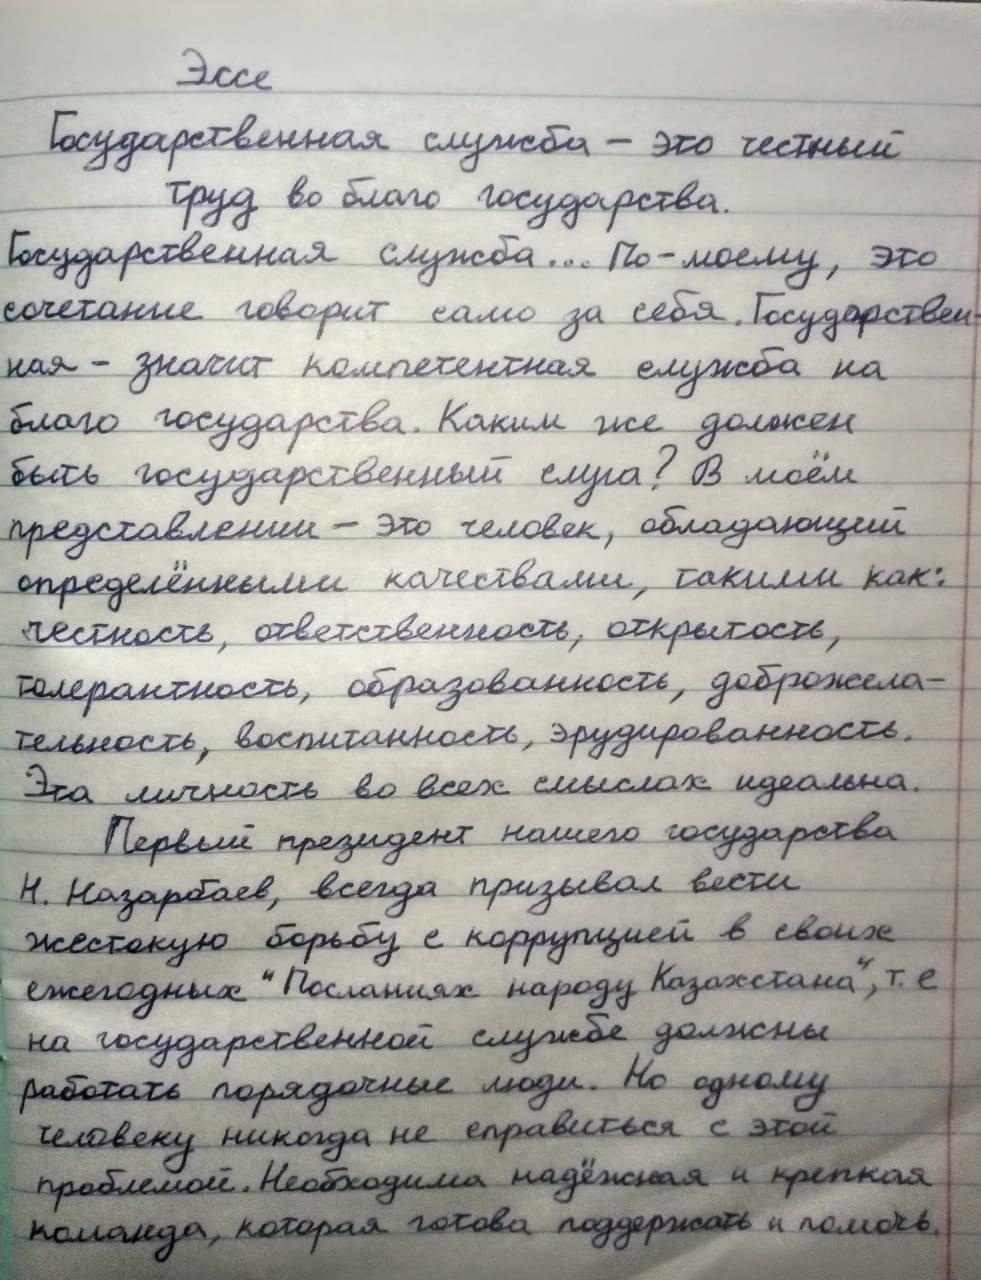 Эссе
Государственная служба – это честный
труд во благо государства.
Государственная служба... По-моему, это
сочетание говорит само за себя. Государствен-
ная – значит компетентная служба на
благо государства. Каким же должен
быть государственный слуга? В моём
представлении – это человек, обладающий
определёнными качествами, такими как:
честность, ответственность, открытость,
толерантность, образованность, доброжела-
тельность, воспитанность, эрудированность.
Эта личность во всех смыслах идеальна.
Первый президент нашего государства
Н. Назарбаев, всегда призывал вести
жестокую борьбу с коррупцией в своих
ежегодных "Посланиях народу Казахстана", т.е
на государственной службе должны
работать порядочные люди. Но одному
человеку никогда не справиться с этой
проблемой. Необходима надёжная и крепкая
команда, которая готова поддержать и помочь.